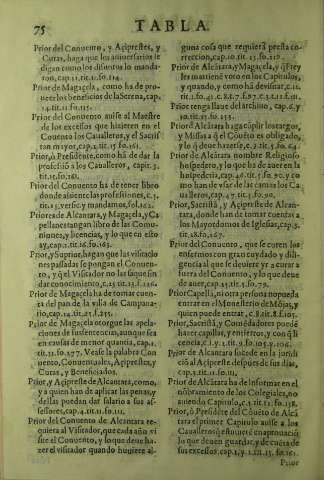 75 TABLA.
Prior del Conuento, y Aciprestes, y
Curas, haga que los aniuersarios se
digan como los difuntos lo manda-
ron, cap.11.tit.11.fo.114.
Prior de Magacela, como ha de pro-
ueer los beneficios de la Serena, cap.
14.tit.11.fo.115.
Prior del Conuento auise al Maestre
de los excessos que hizieren en el
Conuento los Caualleros, y el Sacris
tan mayor, cap.1.tit.16.fo.161.
Prior, ò Presidente, como ha de dar la
professiõ a los Caualleros, capit. 3.
tit.15.fo.
Prior del Conuento ha de tener libro
donde assiente las professiones, c.5.
tit.15. verso, y mandamos, fol.161.
Priores de Alcantara, y Magacela, y Ca
pellanes tengan libro de las Comu-
niones, y licencias, y lo que en esto
ay, cap.1.tit.16.fo.163.
Prior, y Suprior, hagan que las visitacio
nes passadas se pongan el Conuen-
to, y q̃ el Visitador no las saque sin
dar conocimiento, c.15.tit.13.f.136.
Prior de Magacela ha de tomar cuen-
ta del pan de la villa de Campana-
rio, cap.14.tit.21.f.255.
Prior de Magacela otorgue las apela-
ciones de sus sentencias, aunque sea
en causas de menor quantia, cap.1.
tit.31.fo.377. Vease la palabra Con
uento, Conuentuales, Aciprestes, y
Curas, y Beneficiados.
Prior, y Acipreste de Alcantara, como,
y a quien han de aplicar las penas, y
dellas puedan dar salario a sus as-
sessores, cap.4.tit.11.fo.111.
Prior del Conuento de Alcantara re-
quiera al Visitador, que cada año vi
site el Conuento, y lo que deue ha-
zer el visitador quando huuiere al-
guna cosa que requiera presta co-
rreccion, cap.10.tit.13.fo.
Prior de Alcátara, y Magacela, y q̃ Frey
les martiene voto en los Capitulos,
y quando, y como ha de visitar, c.11.
Prior tenga llaue del archiuo, cap.6.y
10.tit.35.fo.
Prior d̃ Alcátara haga cũplir los cargos,
y Missas a q̃ el Cõuẽto es obligado,
y lo q̃ deue hazerse, c.3.tit.4.fo.54.
Prior de Alcátara nombre Religioso
hospedero, y lo que ha de auer en la
hospederia, cap.46.tit.5.fo.90.y co
mo han de vsar de las camas los Ca
ualleros, cap.47.tit.5.fo.90.
Prior, Sacristã, y Acipreste de Alcan-
tara, donde han de tomar cuentas a
los Mayordomos de Iglesias, cap.5.
tit.18.fo.267.
Prior del Conuento, que se curen los
enfermos con gran cuydado, y dili-
gencia al que se deuiere yr a curar a
fuera del Conuento, y lo que deue
de auer, cap.35.tit.5.fo.79.
Prior Capellã, ni otra persona no pueda
entrar en el Monesterio de Mõjas, y
quien puede entrar, c.8.tit.8.fo.105.
Prior, Sacristã, y Comẽdadores puedẽ
hazer capillas, y enterros, y con q̃ li
cencia, c.1.y 2.tit.9.fo.105.y 106.
Prior de Alcantara sucede en la juridi
ciõ al Acipreste despues de sus dias,
cap.1.tit.11.fo.111.
Prior de Alcátara ha de informar en el
nõbramiento de los Colegiales, no
auiendo Capitulo, c.1.tit.12.fo.118.
Prior, ò Presidẽte del Cõuẽto de Alcá
tara el primer Capitulo auise a los
Caualleros q̃ estuuierẽ en aprouaciõ
lo que deuen guardar, y de cuẽta de
sus excessos, cap.1.y 2.tit.15.fo.161.
Prior